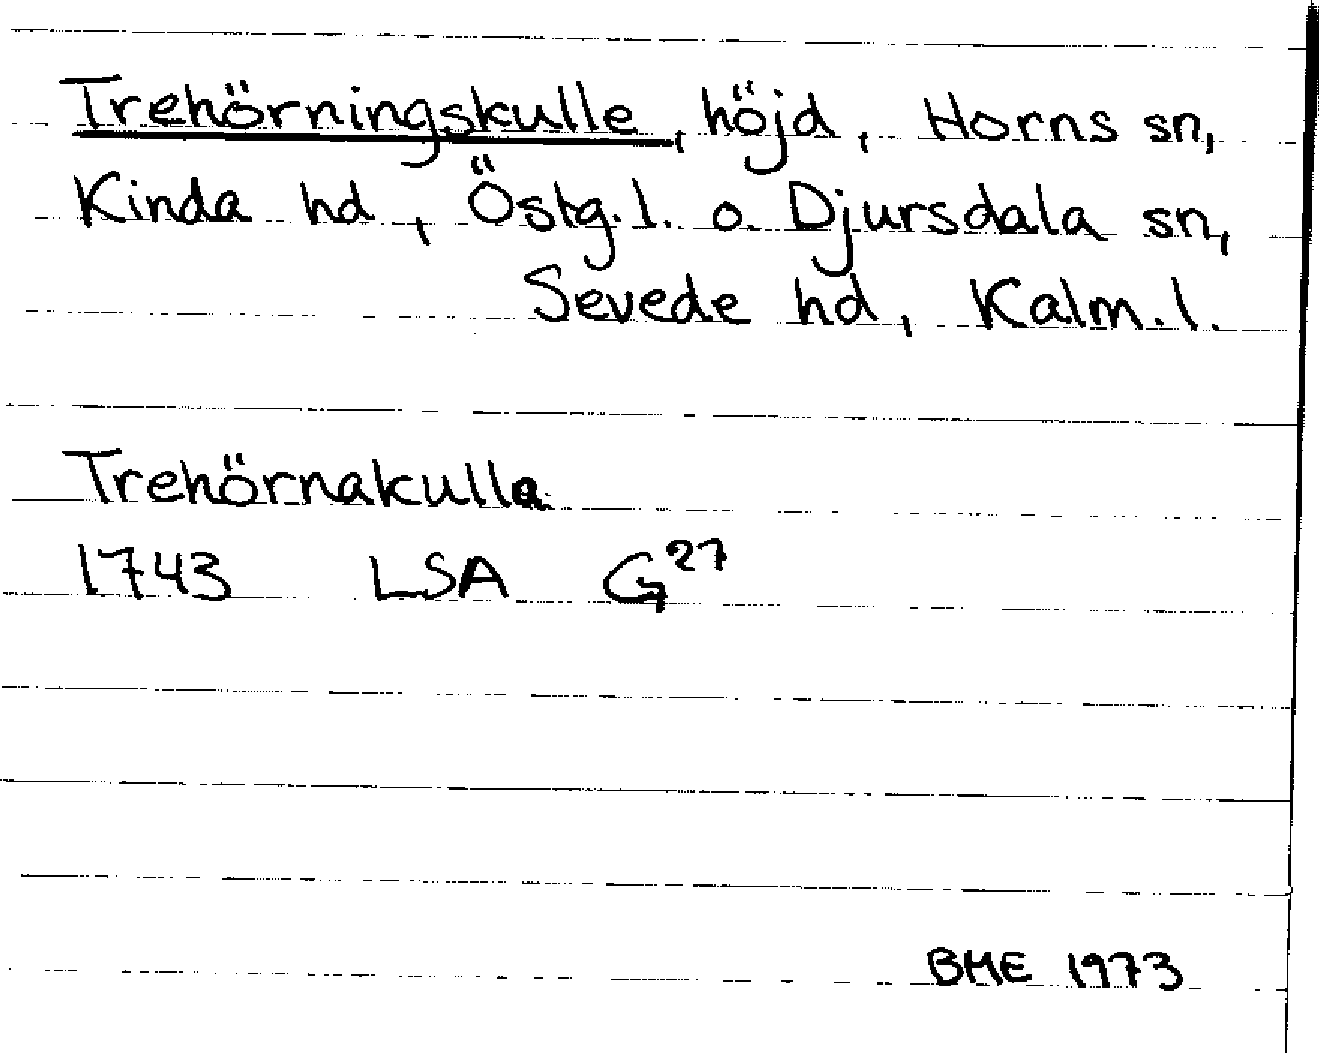 Trehörningskulle, höjd, Horns sn,
Kinda hd, Östg.l. o. Djursdala sn,
Sevede hd, Kalm.l.
Trehörnakulla
1743 LSA G27
BME 1973